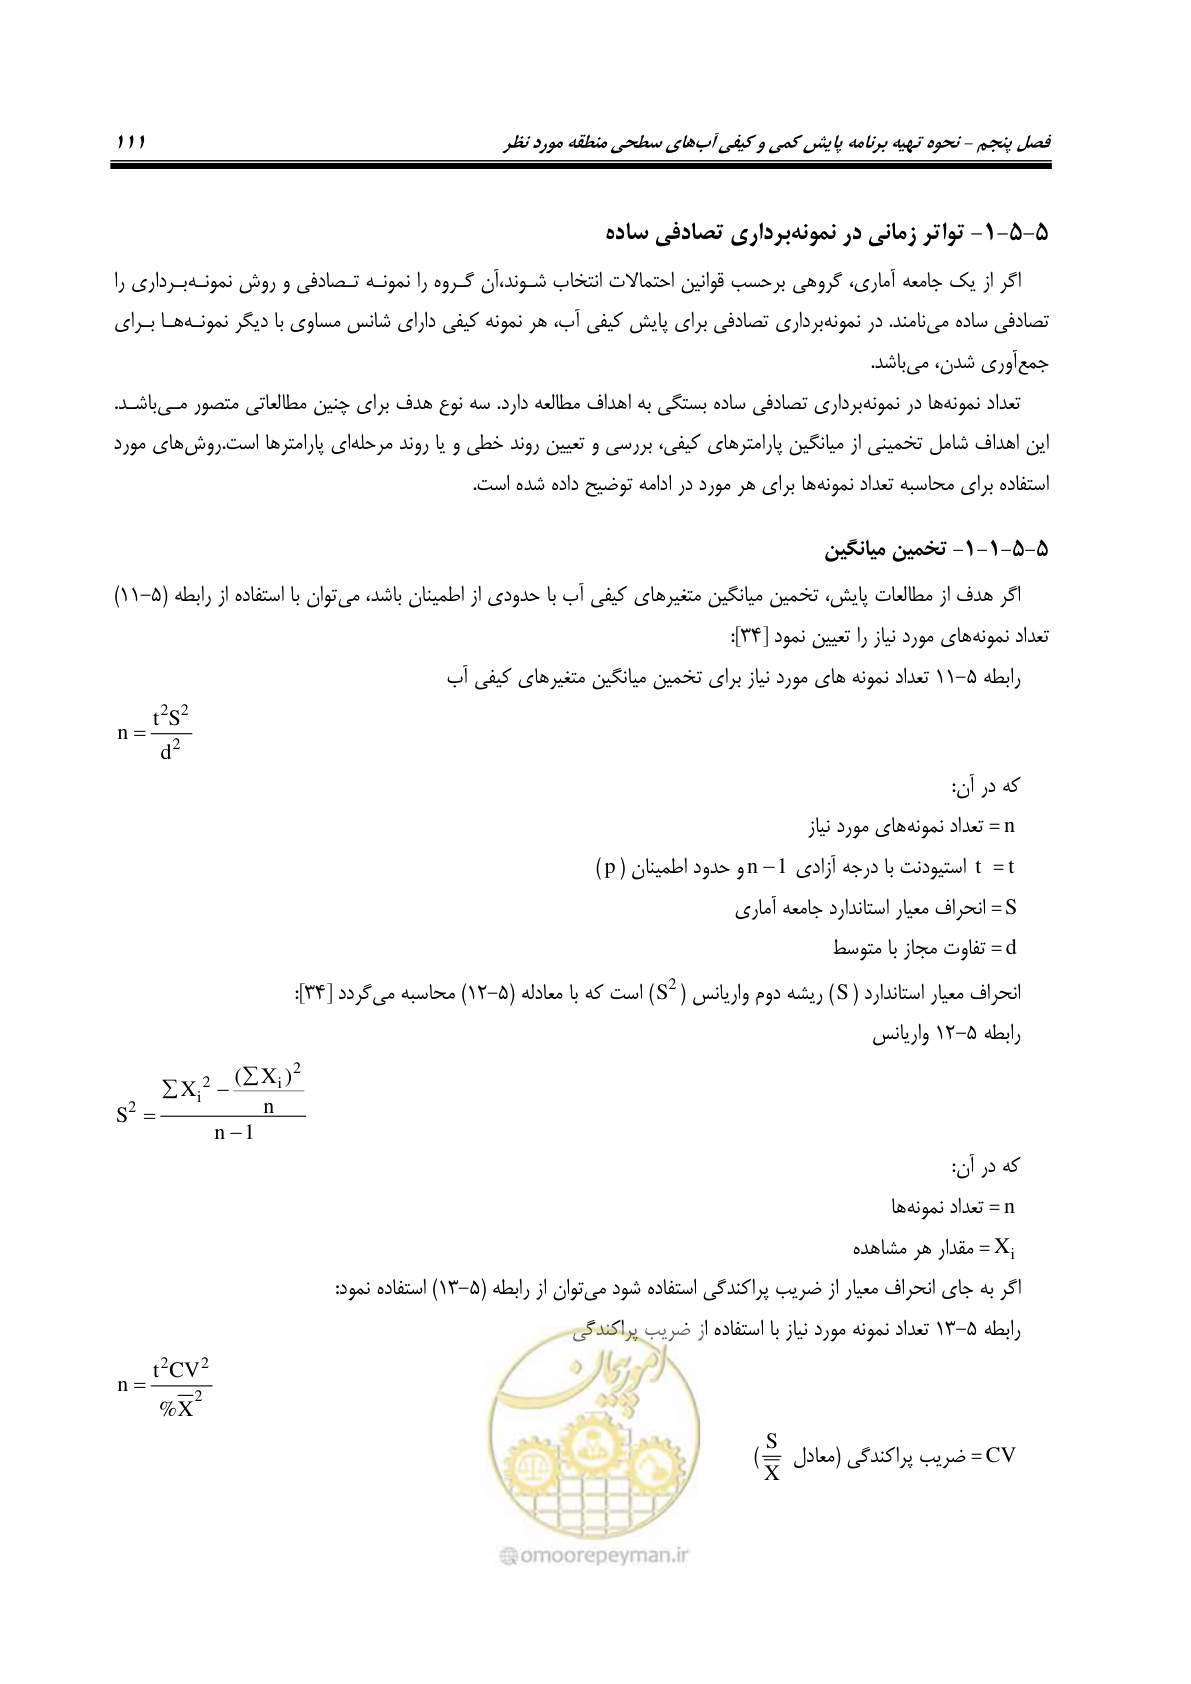 فصل پنجم – نحوه تهیه برنامه پایش کمی و کیفی آب‌های سطحی منطقه مورد نظر ۱۱۱
۵-۵-۱- تواتر زمانی در نمونه‌برداری تصادفی ساده
اگر از یک جامعه آماری، گروهی برحسب قوانین احتمالات انتخاب شـوند،آن گـروه را نمونـه تـصادفی و روش نمونـه‌بـرداری را
تصادفی ساده می‌نامند. در نمونه‌برداری تصادفی برای پایش کیفی آب، هر نمونه کیفی دارای شانس مساوی با دیگر نمونـه‌هـا بـرای
جمع‌آوری شدن، می‌باشد.
تعداد نمونه‌ها در نمونه‌برداری تصادفی ساده بستگی به اهداف مطالعه دارد. سه نوع هدف برای چنین مطالعاتی متصور مـی‌باشـد.
این اهداف شامل تخمینی از میانگین پارامترهای کیفی، بررسی و تعیین روند خطی و یا روند مرحله‌ای پارامترها است.روش‌های مورد
استفاده برای محاسبه تعداد نمونه‌ها برای هر مورد در ادامه توضیح داده شده است.
۵-۵-۱-۱- تخمین میانگین
اگر هدف از مطالعات پایش، تخمین میانگین متغیرهای کیفی آب با حدودی از اطمینان باشد، می‌توان با استفاده از رابطه (۵-۱۱)
تعداد نمونه‌های مورد نیاز را تعیین نمود [۳۴]:
رابطه ۵-۱۱ تعداد نمونه های مورد نیاز برای تخمین میانگین متغیرهای کیفی آب
n = t²S² / d²
که در آن:
n = تعداد نمونه‌های مورد نیاز
t = t استیودنت با درجه آزادی n – 1 و حدود اطمینان ( p )
S = انحراف معیار استاندارد جامعه آماری
d = تفاوت مجاز با متوسط
انحراف معیار استاندارد ( S ) ریشه دوم واریانس ( S² ) است که با معادله (۵-۱۲) محاسبه می‌گردد [۳۴]:
رابطه ۵-۱۲ واریانس
S² = (∑Xᵢ² – (∑Xᵢ)² / n) / (n – 1)
که در آن:
n = تعداد نمونه‌ها
Xᵢ = مقدار هر مشاهده
اگر به جای انحراف معیار از ضریب پراکندگی استفاده شود می‌توان از رابطه (۵-۱۳) استفاده نمود:
رابطه ۵-۱۳ تعداد نمونه مورد نیاز با استفاده از ضریب پراکندگی
n = t²CV² / %X̅²
CV = ضریب پراکندگی (معادل S / X̅)
امور پیمان
@omoorepeyman.ir